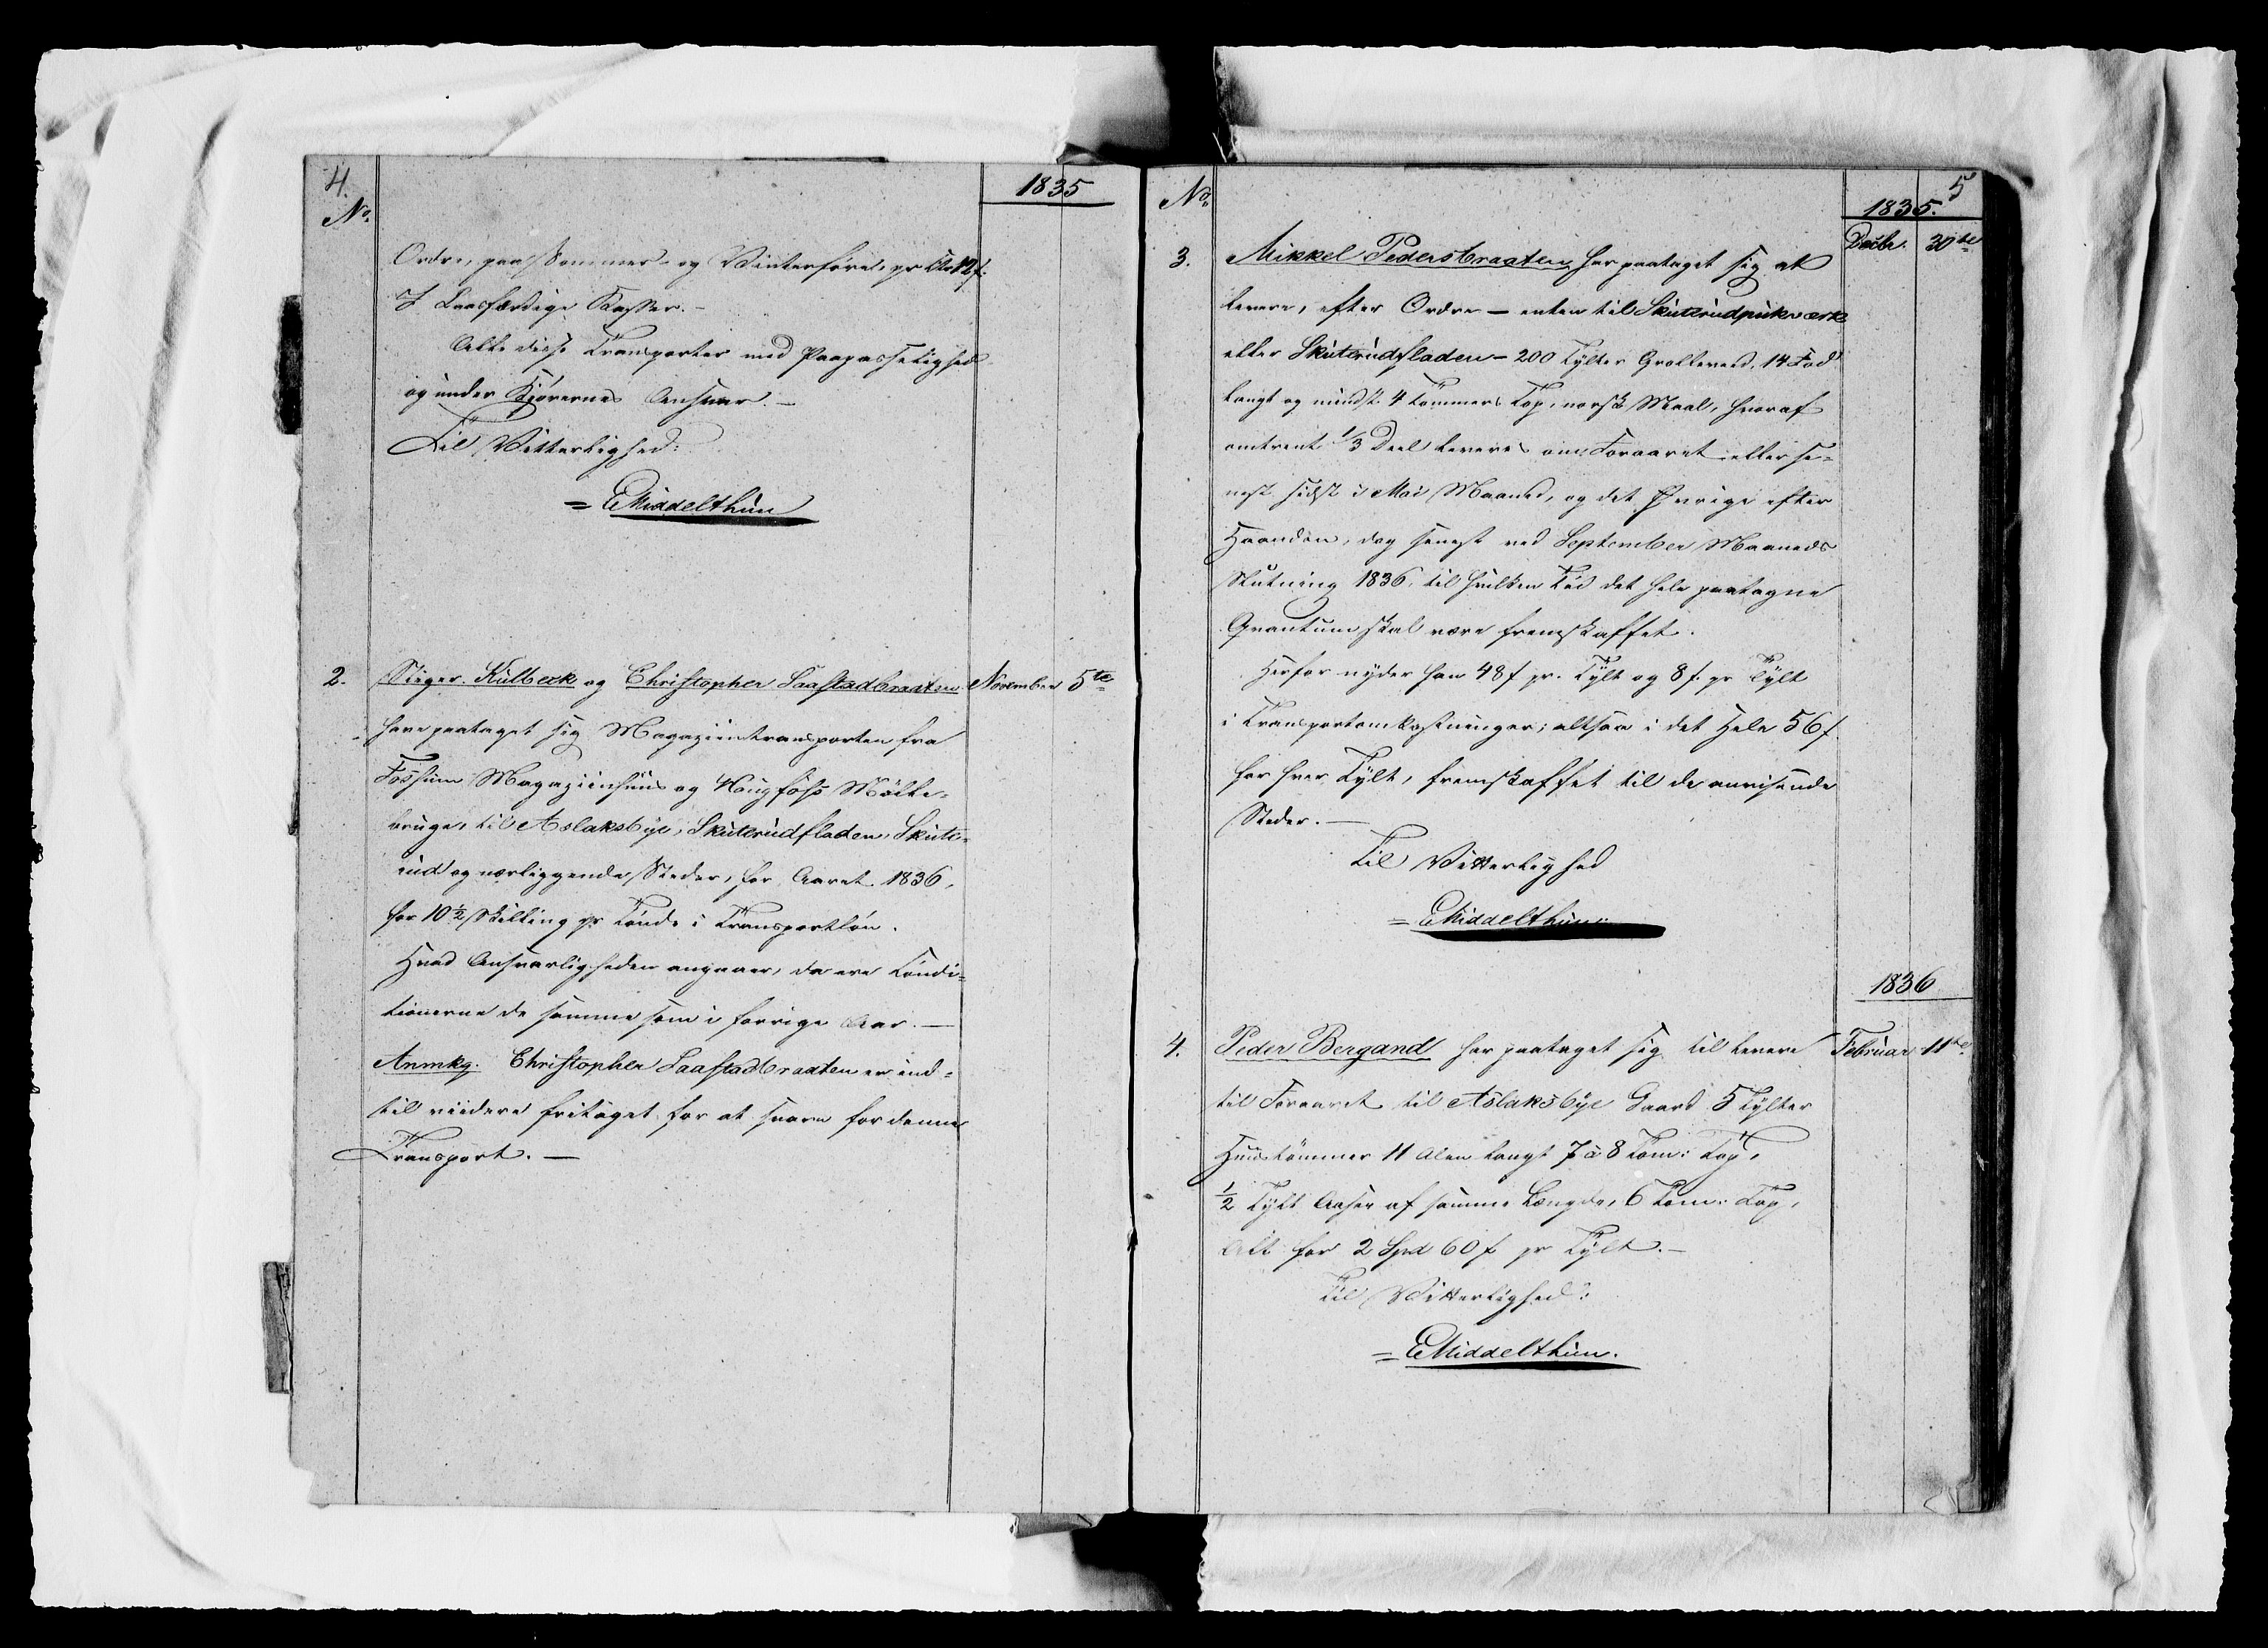 4.
No.
1835
Ordre, paa Sommer- og Vinterføret, pr Ctr 12 ſ.
I Laasfærdige Kasser.-
Alle disse Transporter med Paapasselighed
og under Kjørernes Ansvar.-
Til Vitterlighed:
= EMiddelthun
2. Kulbeck og Christopher Saastadbraaten November 5te
have paataget sig Magaziintransporten fra
Fossum Magaziinhuus og Haugfoss Mølle-
brug, til Aslaksbye, Skuterudfladen, Skute-
rud og nærliggende Steder, for Aaret 1836,
for 10 1/2 Skilling pr Tønde i Transportløn.
Hvad Ansvarligheden angaaer, da ere Condi-
tionerne de samme som i forrige Aar.-
Anmkg. Christopher Saastadbraaten er ind-
til viidere fritaget for at svare for denne
Transport.-
No.
5
1835.
3. Mikkel Pedersbraaten har paataget sig at Decbr. 30te
levere, efter Ordre - enten til Skuterudpukværk
eller Skuterudfladen - 200 Tylter Grolleved, 14 Fod
langt og mindst 4 Tommers Top, norsk Maal, hvoraf
omtrent 1/3 Deel leveres om Foraaret eller se-
nest sidst i Mai Maaned, og det Øvrige efter
Haanden, dog senest ved September Maaneds
Slutning 1836, til hvilken Tid det hele paatagne
Qvantum skal være fremskaffet.
Herfor nyder han 48 ſ pr. Tylt og 8 ſ. pr Tylt
i Transportomkostninger; altsaa i det Hele 56 ſ.
for hver Tylt, fremskaffet til de anvisende
Steder.-
Til Vitterlighed
= EMiddelthun.
1836
4. Peder Bergand har paataget sig til levere Februar 11te
til Foraaret til Aslaksbye Gaard 5 Tylter
Huustømmer 11 Alen langt 7 à 8 Tom: Top,
1/2 Tylt Aaser af samme Længde, 6 Tom: Top,
Alt for 2 Spd 60 ſ pr Tylt.-
Til Vitterlighed:
= EMiddelthun.